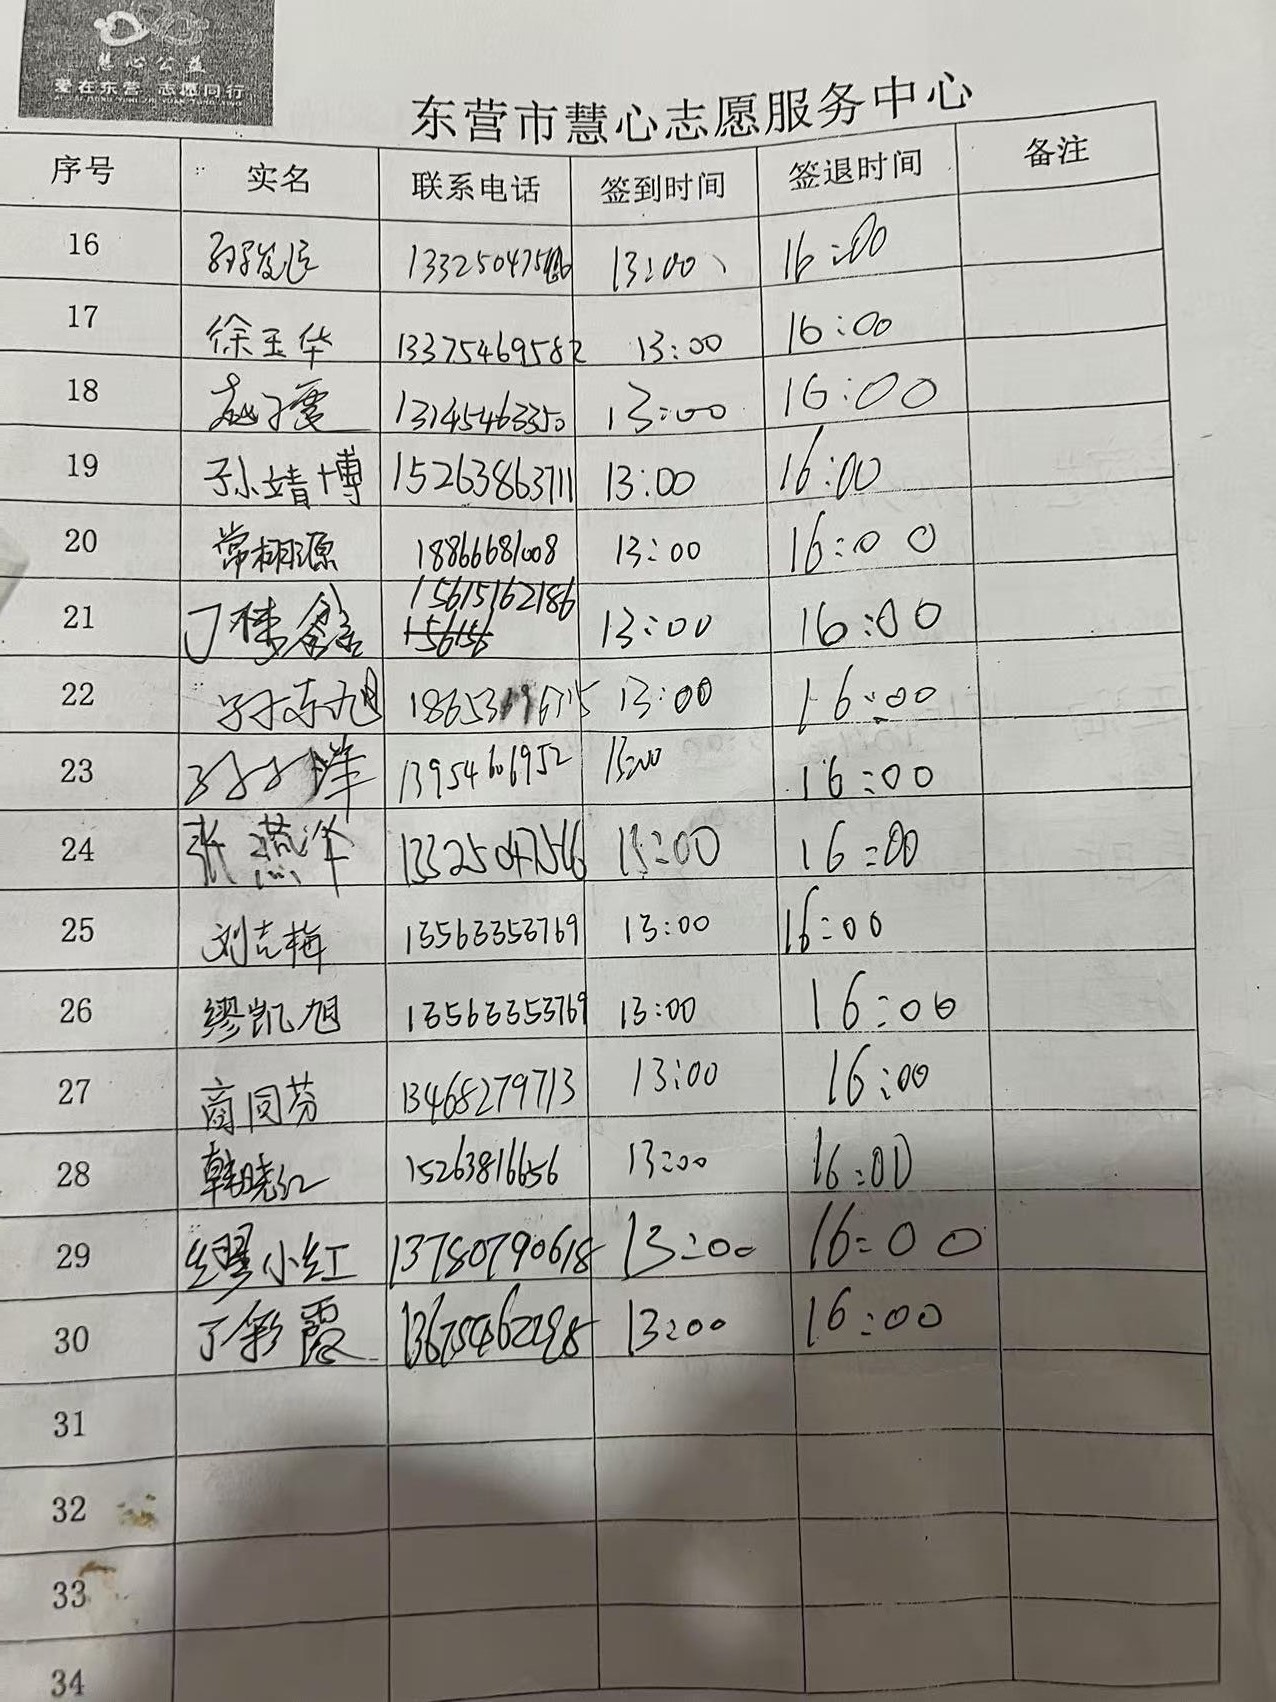 慧心公益
爱在东营 志愿同行
东营市慧心志愿服务中心
序号 实名 联系电话 签到时间 签退时间 备注
16 13:00 16:00
17 徐玉华 13375469582 13:00 16:00
18 赵子震 13145463350 13:00 16:00
19 孙靖博 15263863711 13:00 16:00
20 常栩源 18866681008 13:00 16:00
21 丁栋鑫 15615162186 13:00 16:00
15615
22 孙东旭 13:00 16:00
23 13954606952 13:00 16:00
24 张燕华 13325047566 13:00 16:00
25 刘志梅 13563353769 13:00 16:00
26 缪凯旭 13563353769 13:00 16:00
27 商同芬 13468279713 13:00 16:00
28 韩晓红 15263816656 13:00 16:00
29 缪小红 13780790618 13:00 16:00
30 丁彩霞 13675462298 13:00 16:00
31
32
33
34